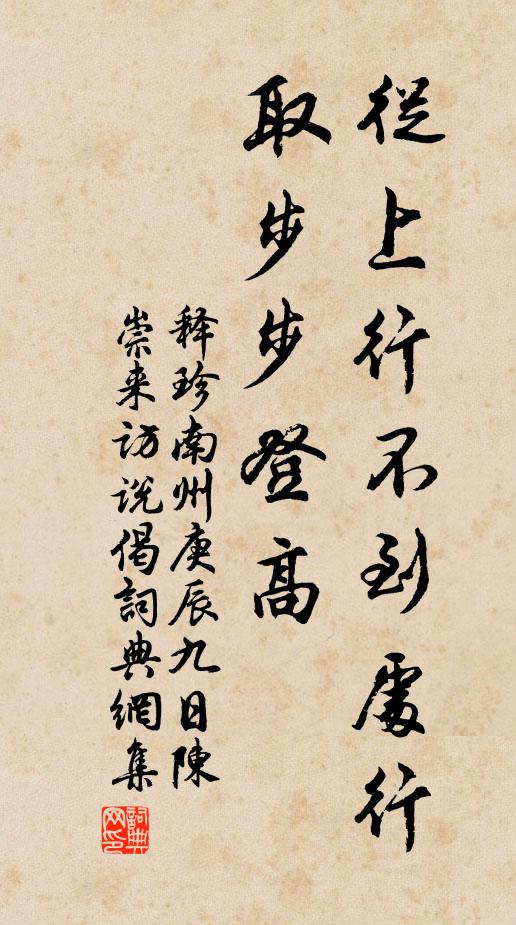 從上行不到處行
取步步登高
释珍南州庚辰九日陳
崇来訪说偈詞典網集
詞典
网印